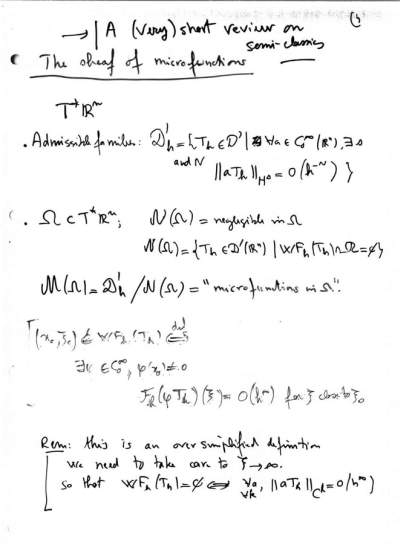 → | A (very) short review on (4
semi-classics
The sheaf of microfunctions
T*ℝⁿ
. Admissible families: D'ₕ = {Tₕ ∈ D' | ∀a ∈ C₀^∞(ℝⁿ), ∃ s
and N
||aTₕ||_{Hˢ} = O(h^{-N}) }
. Ω ⊂ T*ℝⁿ; N(Ω) = negligible in Ω
N(Ω) = {Tₕ ∈ D'(ℝⁿ) | WFₕ(Tₕ) ∩ Ω = ∅}
M(Ω) = D'ₕ / N(Ω) = "microfunctions in Ω".
(x₀, ξ₀) ∉ WFₕ(Tₕ) ⟺ def
∃φ ∈ C₀^∞, φ(x₀) ≠ 0
Fₕ(φTₕ)(ξ) = O(h^∞) for ξ close to ξ₀
Rem: this is an over simplified definition
we need to take care to ξ → ∞.
so that WFₕ(Tₕ) = ∅ ⟺ ∀a, ∀k, ||aTₕ||_{Cᵏ} = O(h^∞)